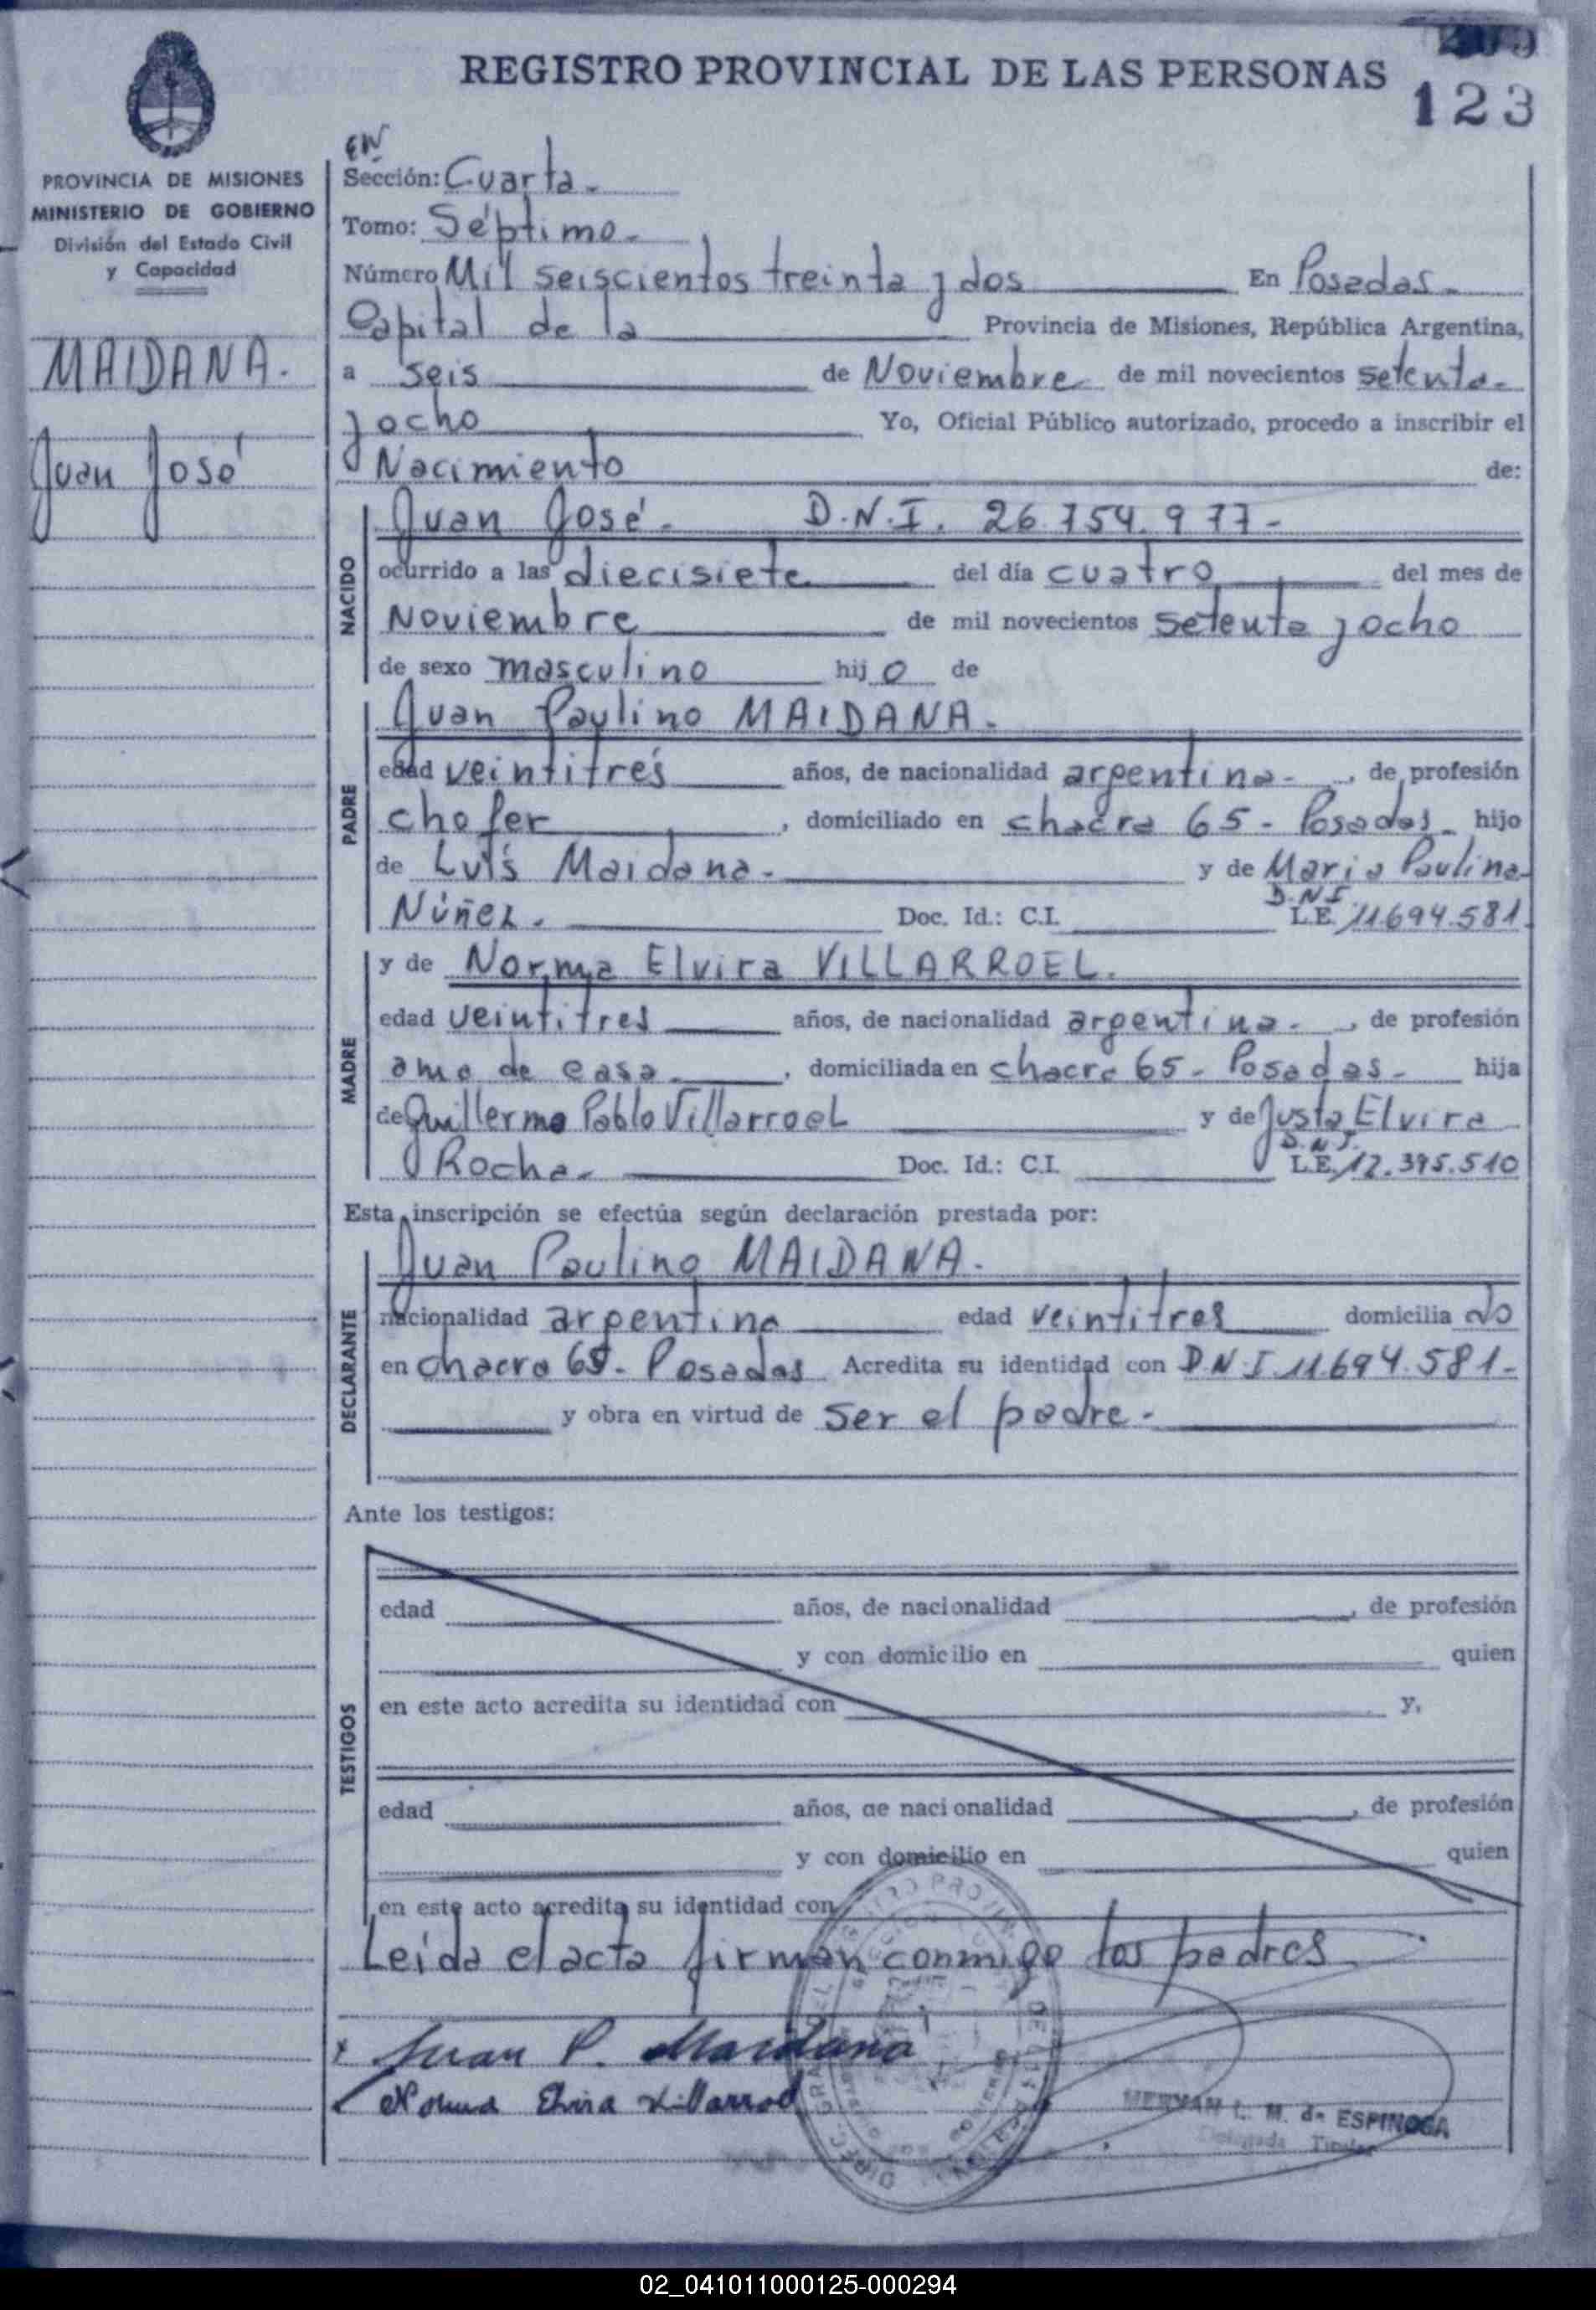 REGISTRO PROVINCIAL DE LAS PERSONAS
123
PROVINCIA DE MISIONES
MINISTERIO DE GOBIERNO
División del Estado Civil
y Capacidad
MAIDANA.
Juan José
EN
Sección: Cuarta.
Tomo: Séptimo.
Número Mil seiscientos treinta y dos En Posadas.
Capital de la Provincia de Misiones, República Argentina,
a seis de Noviembre de mil novecientos setenta
y ocho Yo, Oficial Público autorizado, procedo a inscribir el
Nacimiento de:
NACIDO
Juan José. D.N.I. 26.754.977-
ocurrido a las diecisiete del día cuatro del mes de
Noviembre de mil novecientos setenta y ocho
de sexo masculino hij o de
PADRE
Juan Paulino MAIDANA.
edad veintitrés años, de nacionalidad argentina-, de profesión
chofer, domiciliado en chacra 65- Posadas hijo
de Luis Maidana. y de Maria Paulina
Núñez. Doc. Id.: C.I. D.N.I L.E. 11.694.581
MADRE
y de Norma Elvira VILLARROEL.
edad veintitres años, de nacionalidad argentina-, de profesión
ama de casa, domiciliada en chacra 65- Posadas- hija
de Guillermo Pablo Villarroel y de Justa Elvira
Rocha. Doc. Id.: C.I. D.N.I. L.E. 12.395.510
Esta inscripción se efectúa según declaración prestada por:
DECLARANTE
Juan Paulino MAIDANA.
nacionalidad argentina edad veintitres domicilia do
en chacra 65- Posadas Acredita su identidad con D.N.I 11.694.581-
y obra en virtud de ser el padre-
Ante los testigos:
TESTIGOS
edad años, de nacionalidad, de profesión
y con domicilio en quien
en este acto acredita su identidad con y,
edad años, de nacionalidad, de profesión
y con domicilio en quien
en este acto acredita su identidad con
Leida el acta firman conmigo los padres
Juan P. Maidana
Norma Elvira Villarroel
L. M. de ESPINOSA
Titular
02_041011000125-000294